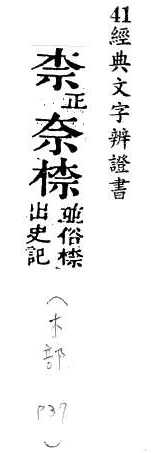 41 經典文字辨證書
柰正奈㮈並俗㮈
出史記
（木部 P37）